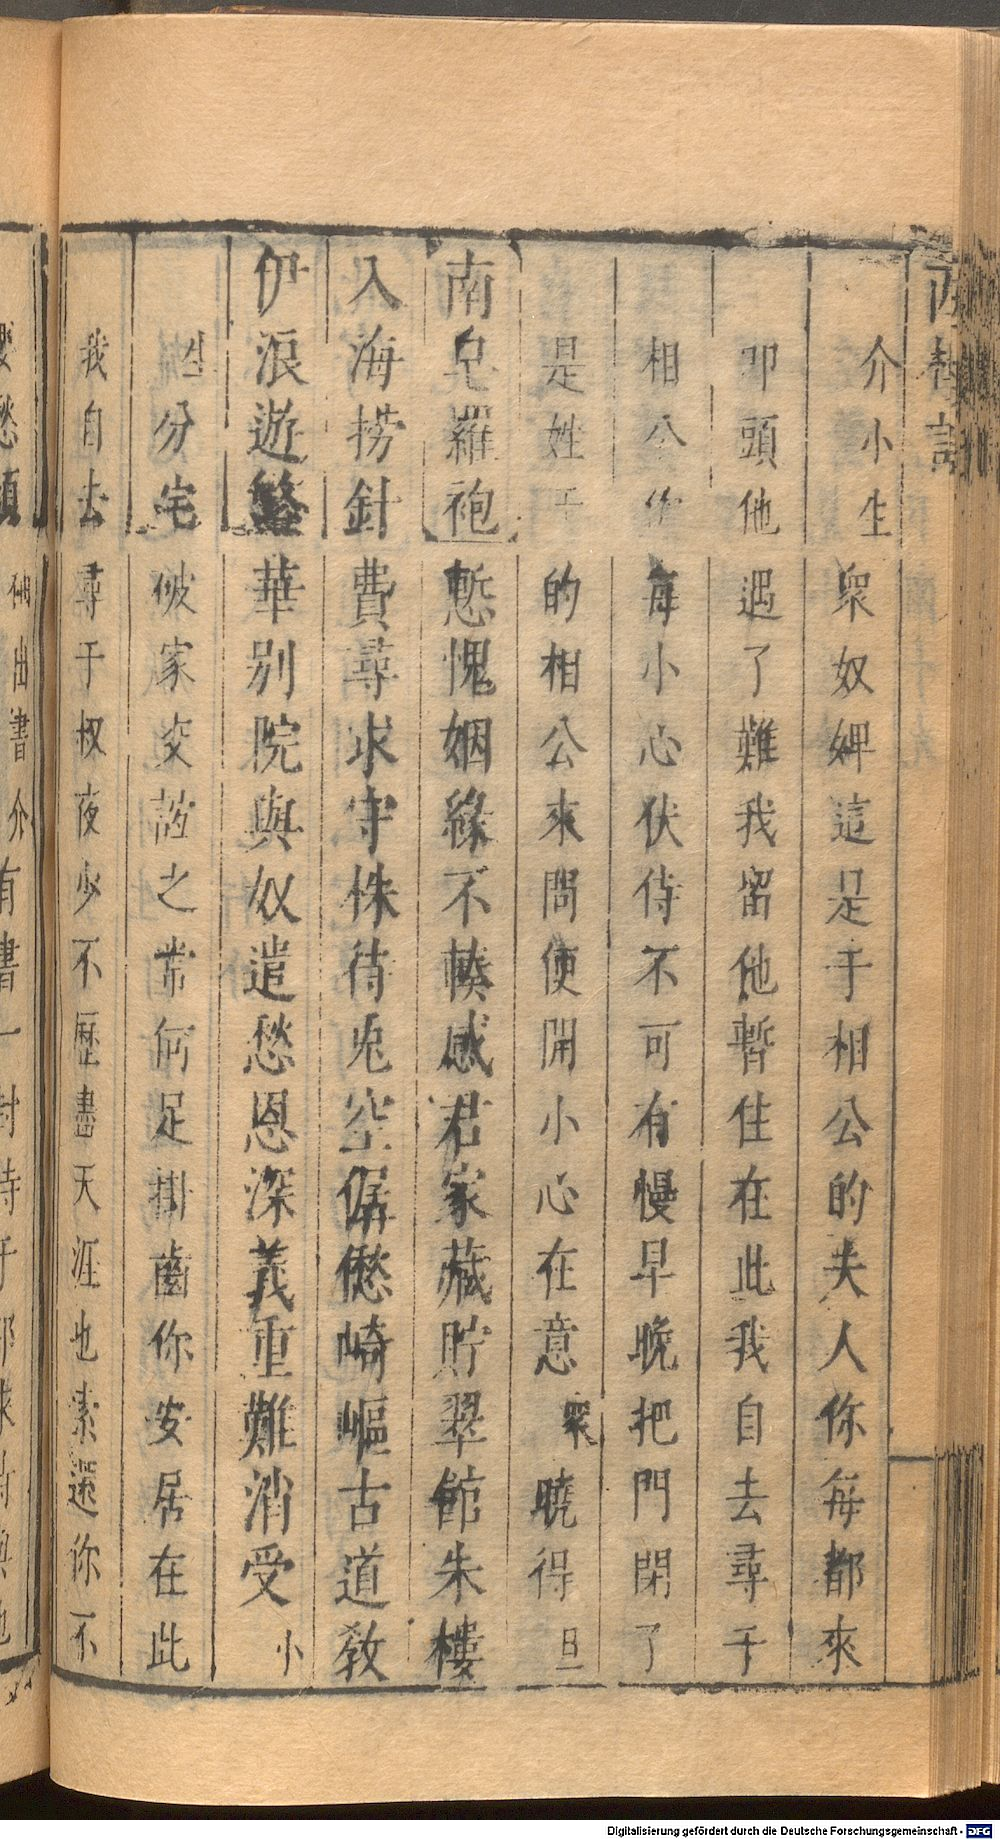 西樓記
介小生衆奴婢這是于相公的夫人你每都來
叩頭他遇了難我留他暫住在此我自去尋于
相公你每小心伏侍不可有慢早晚把門閉了
是姓于的相公來問便開小心在意衆曉得旦
南皂羅袍慙愧姻緣不輳感君家藏貯翠館朱樓
入海撈針費尋求守株待兎空僝僽崎嶇古道教
伊浪遊繁華别院與奴遣愁恩深義重難消受小
生分宅破家交誼之常何足掛齒你安居在此
我自去尋于叔夜少不歷盡天涯也索還你不
Digitalisierung gefördert durch die Deutsche Forschungsgemeinschaft - DFG